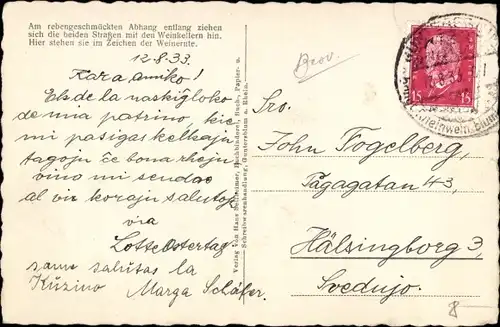 Am rebengeschmückten Abhang entlang ziehen
sich die beiden Straßen mit den Weinkellern hin.
Hier stehen sie im Zeichen der Weinernte.
12.8.33.
Kara amiko!
El de la naskiĝloko
de mia patrino, kie
mi pasigas kelkajn
tagojn ĉe bona rhejn
vino mi sendas
al vi korajn salutojn
via
Lotte Ostertag
sam salutas la
Kuzino Marga Schäfer.
Verlag von Hans Buchbinderei, Buch-, Papier- u.
Schreibwarenhandlung, Guntersblum a. Rhein.
Brov.
15 15
Sro.
John Fogelberg,
Pagagatan 43,
Hälsingborg 3,
Svedujo.
8